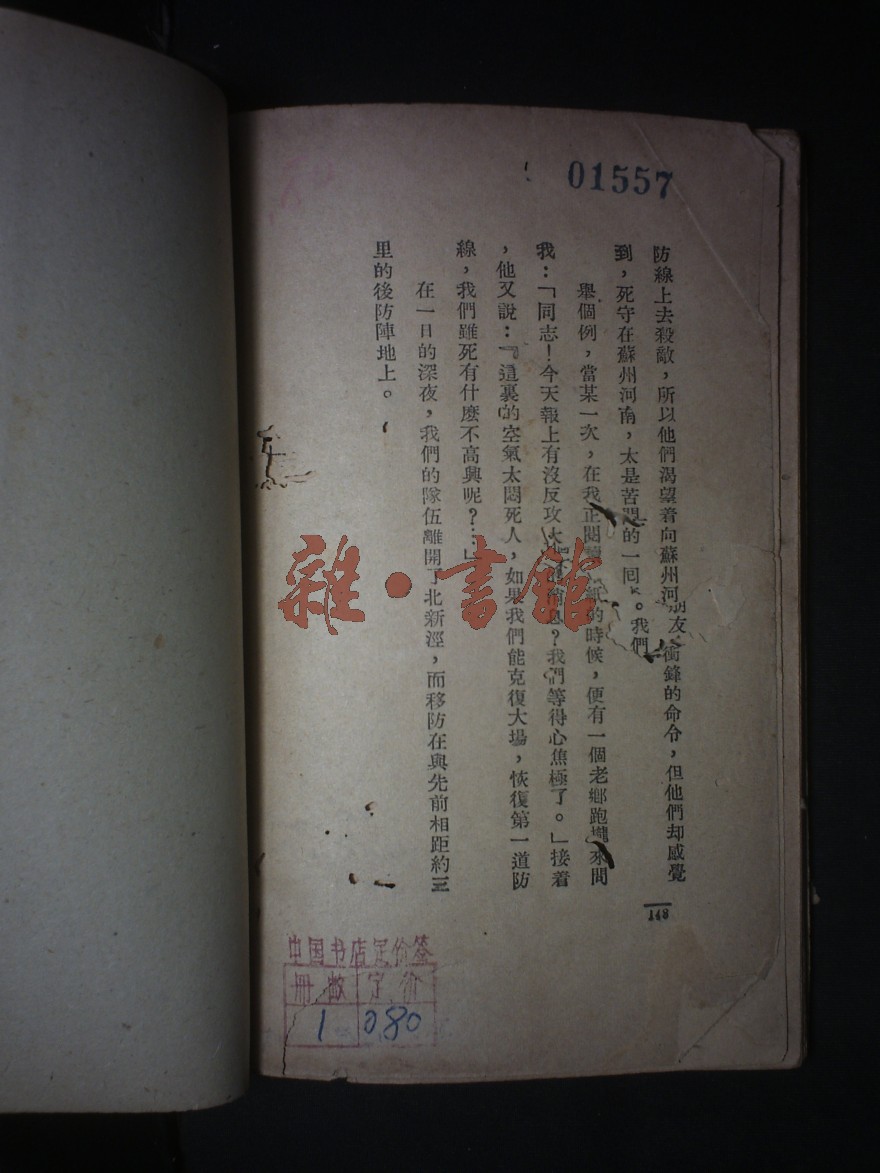 01557
防線上去殺敵，所以他們渴望着向蘇州河朋友衝鋒的命令，但他們却感覺
到，死守在蘇州河南，太是苦悶的一回。我們
舉個例，當某一次，在我正閱紙的時候，便有一個老鄉跑攏來問
我：「同志！今天報上有沒反攻大消息？我們等得心焦極了。」接着
，他又說：『這裏的空氣太悶死人，如果我們能克復大場，恢復第一道防
線，我們雖死有什麼不高興呢？…」
在一日的深夜，我們的隊伍離開了北新涇，而移防在與先前相距約三
里的後防陣地上。
148
雜·書館
中国书店定价签
册数 定价
1 080